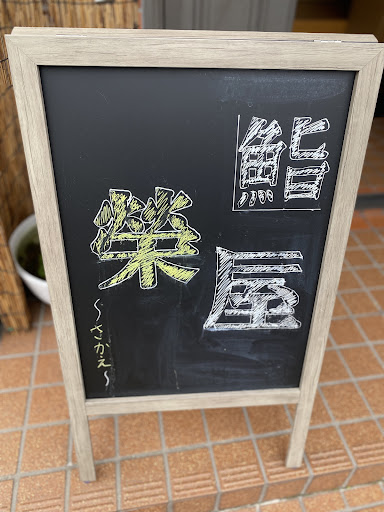 鮨屋
栄
～さかえ～